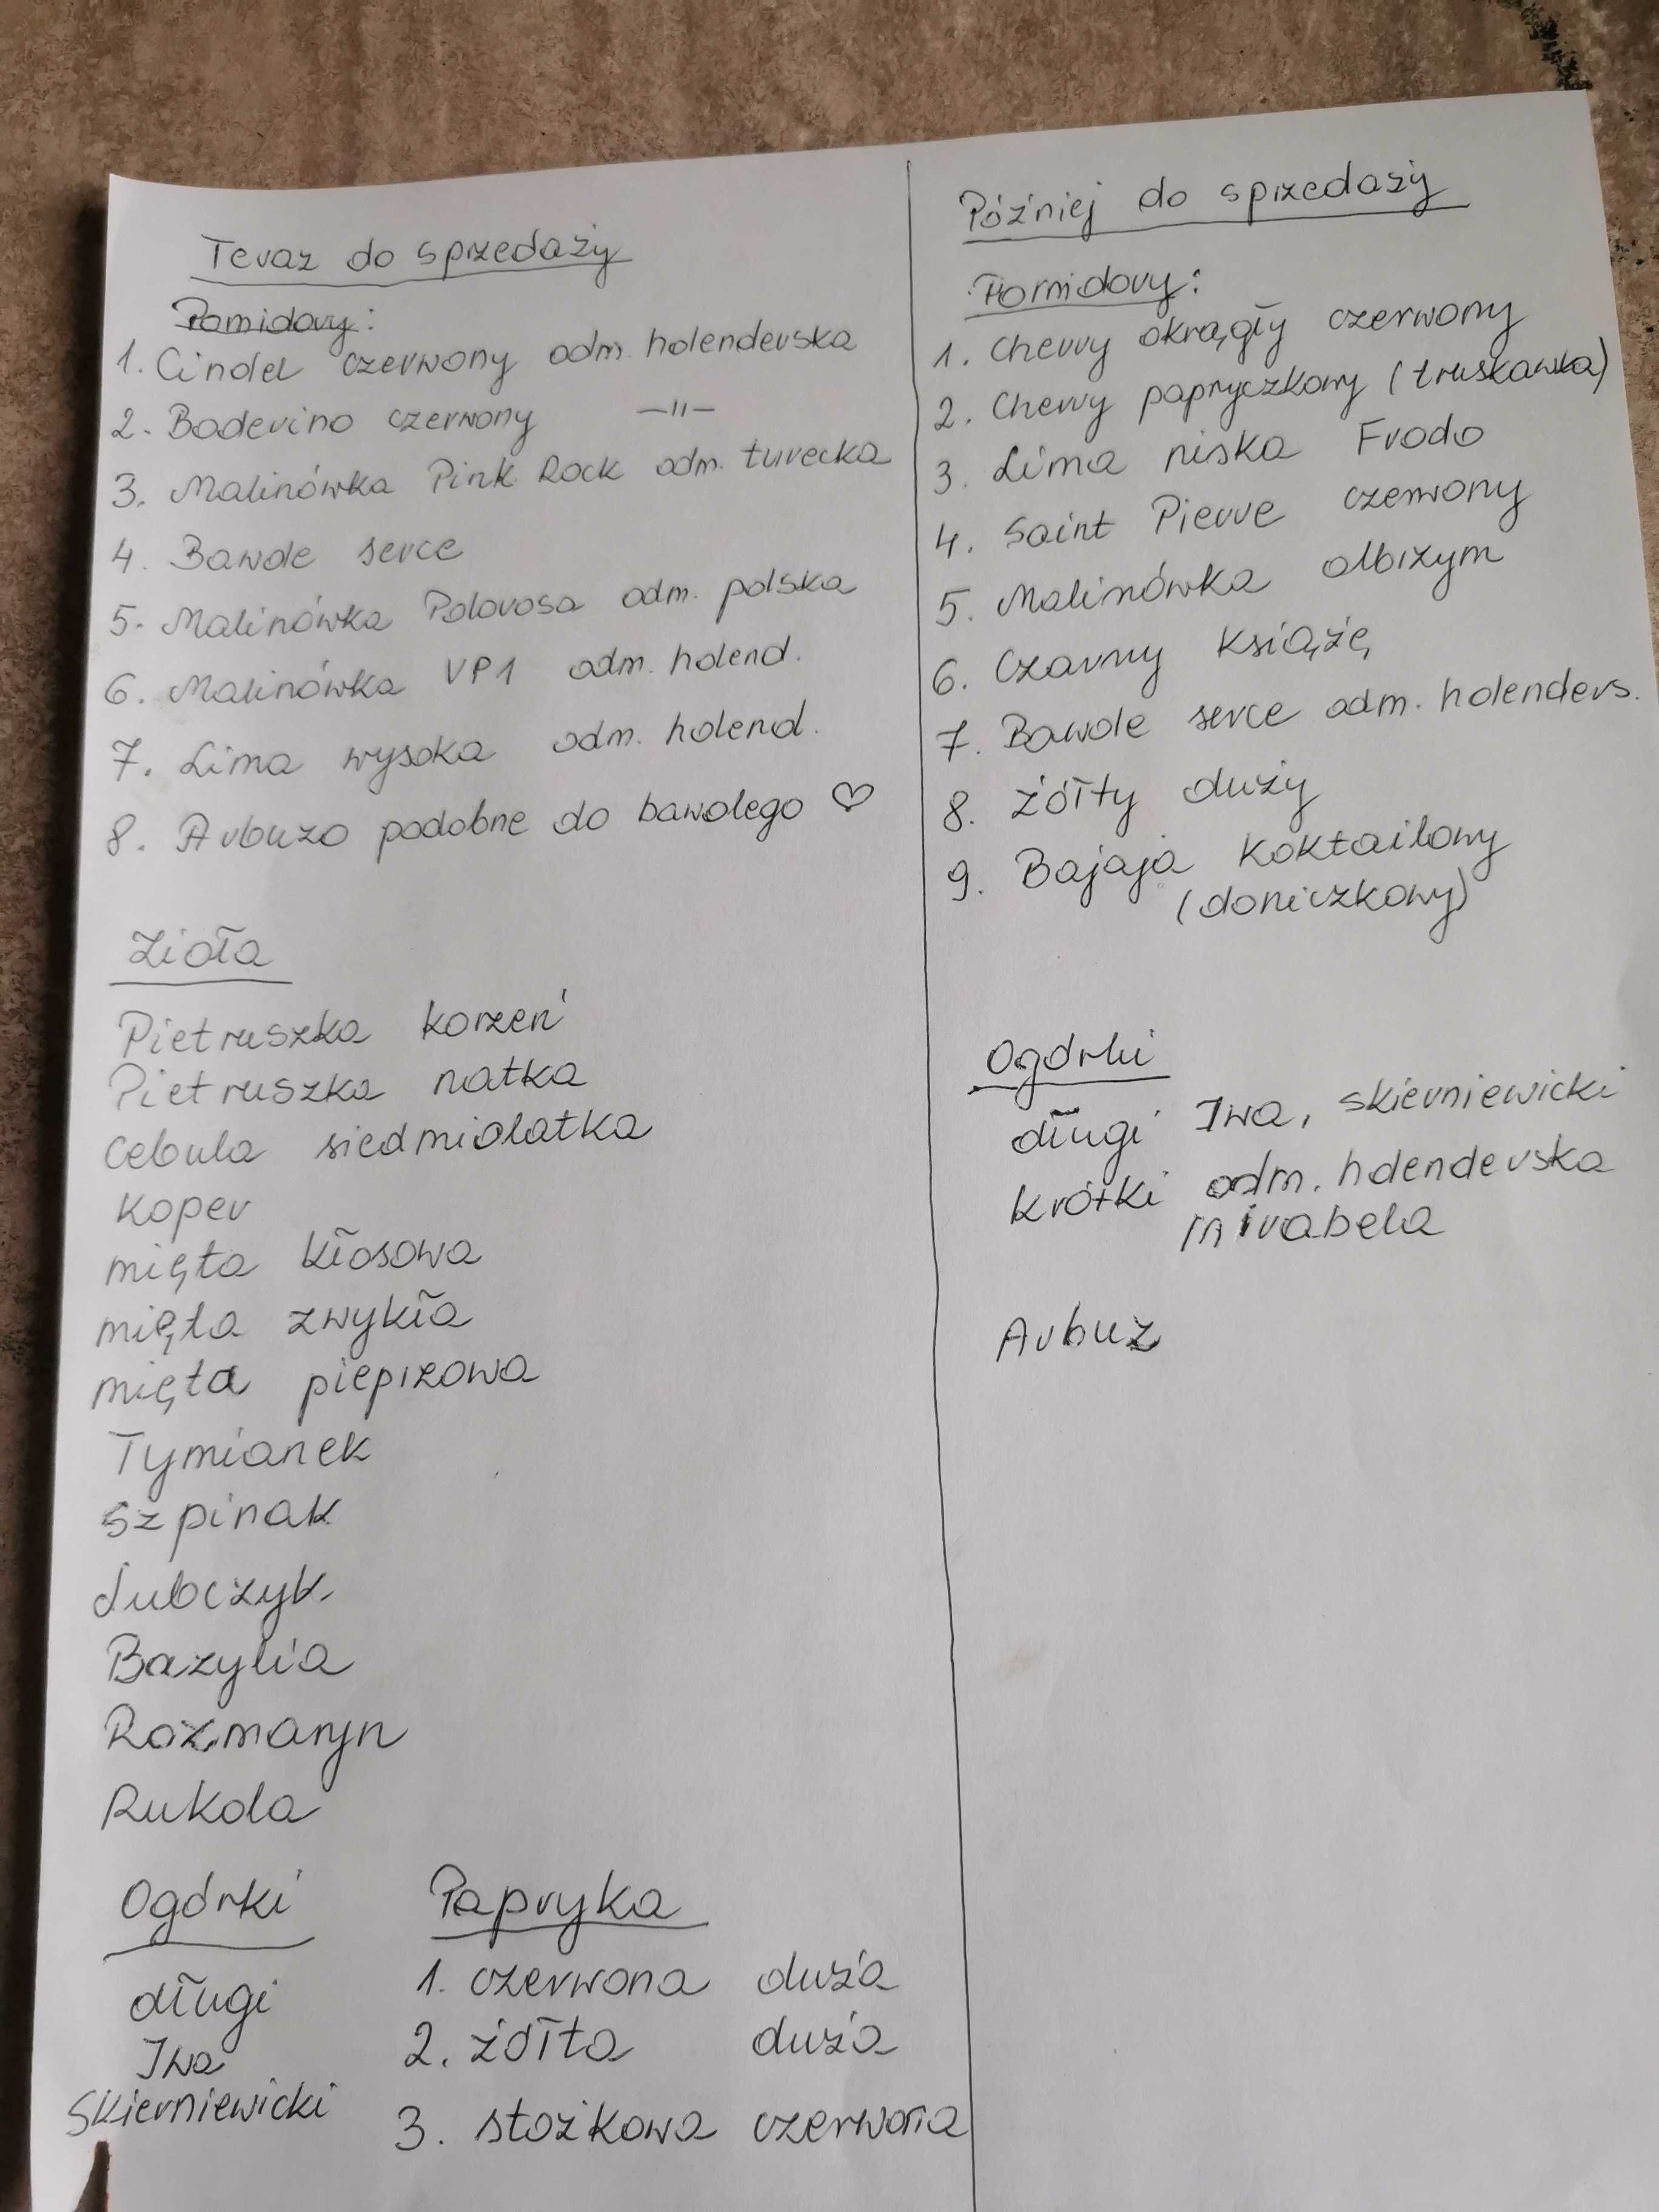 Teraz do sprzedaży
Pomidory:
1. Cindel czerwony odm. holenderska
2. Boderino czerwony —"—
3. Malinówka Pink Rock odm. turecka
4. Bawole serce
5. Malinówka Polorosa odm. polska
6. Malinówka VP1 odm. holend.
7. Lima wysoka odm. holend.
8. Arbuzo podobne do bawolego ♡
Zioła
Pietruszka korzeń
Pietruszka natka
Cebula siedmiolatka
Koper
mięta kłosowa
mięta zwykła
mięta pieprzowa
Tymianek
Szpinak
Lubczyk
Bazylia
Rozmaryn
Rukola
Ogórki
długi
Iwa
Skierniewicki
Papryka
1. czerwona duża
2. żółta duża
3. stożkowa czerwona
Później do sprzedaży
Pomidory:
1. Cherry okrągły czerwony
2. Cherry papryczkowy (truskawka)
3. Lima niska Frodo
4. Saint Pierre czerwony
5. Malinówka olbrzym
6. Czarny książę
7. Bawole serce odm. holenders.
8. żółty duży
9. Bajaja koktailowy
(doniczkowy)
Ogórki
długi Iwa, skierniewicki
krótki odm. holenderska
mirabela
Arbuz